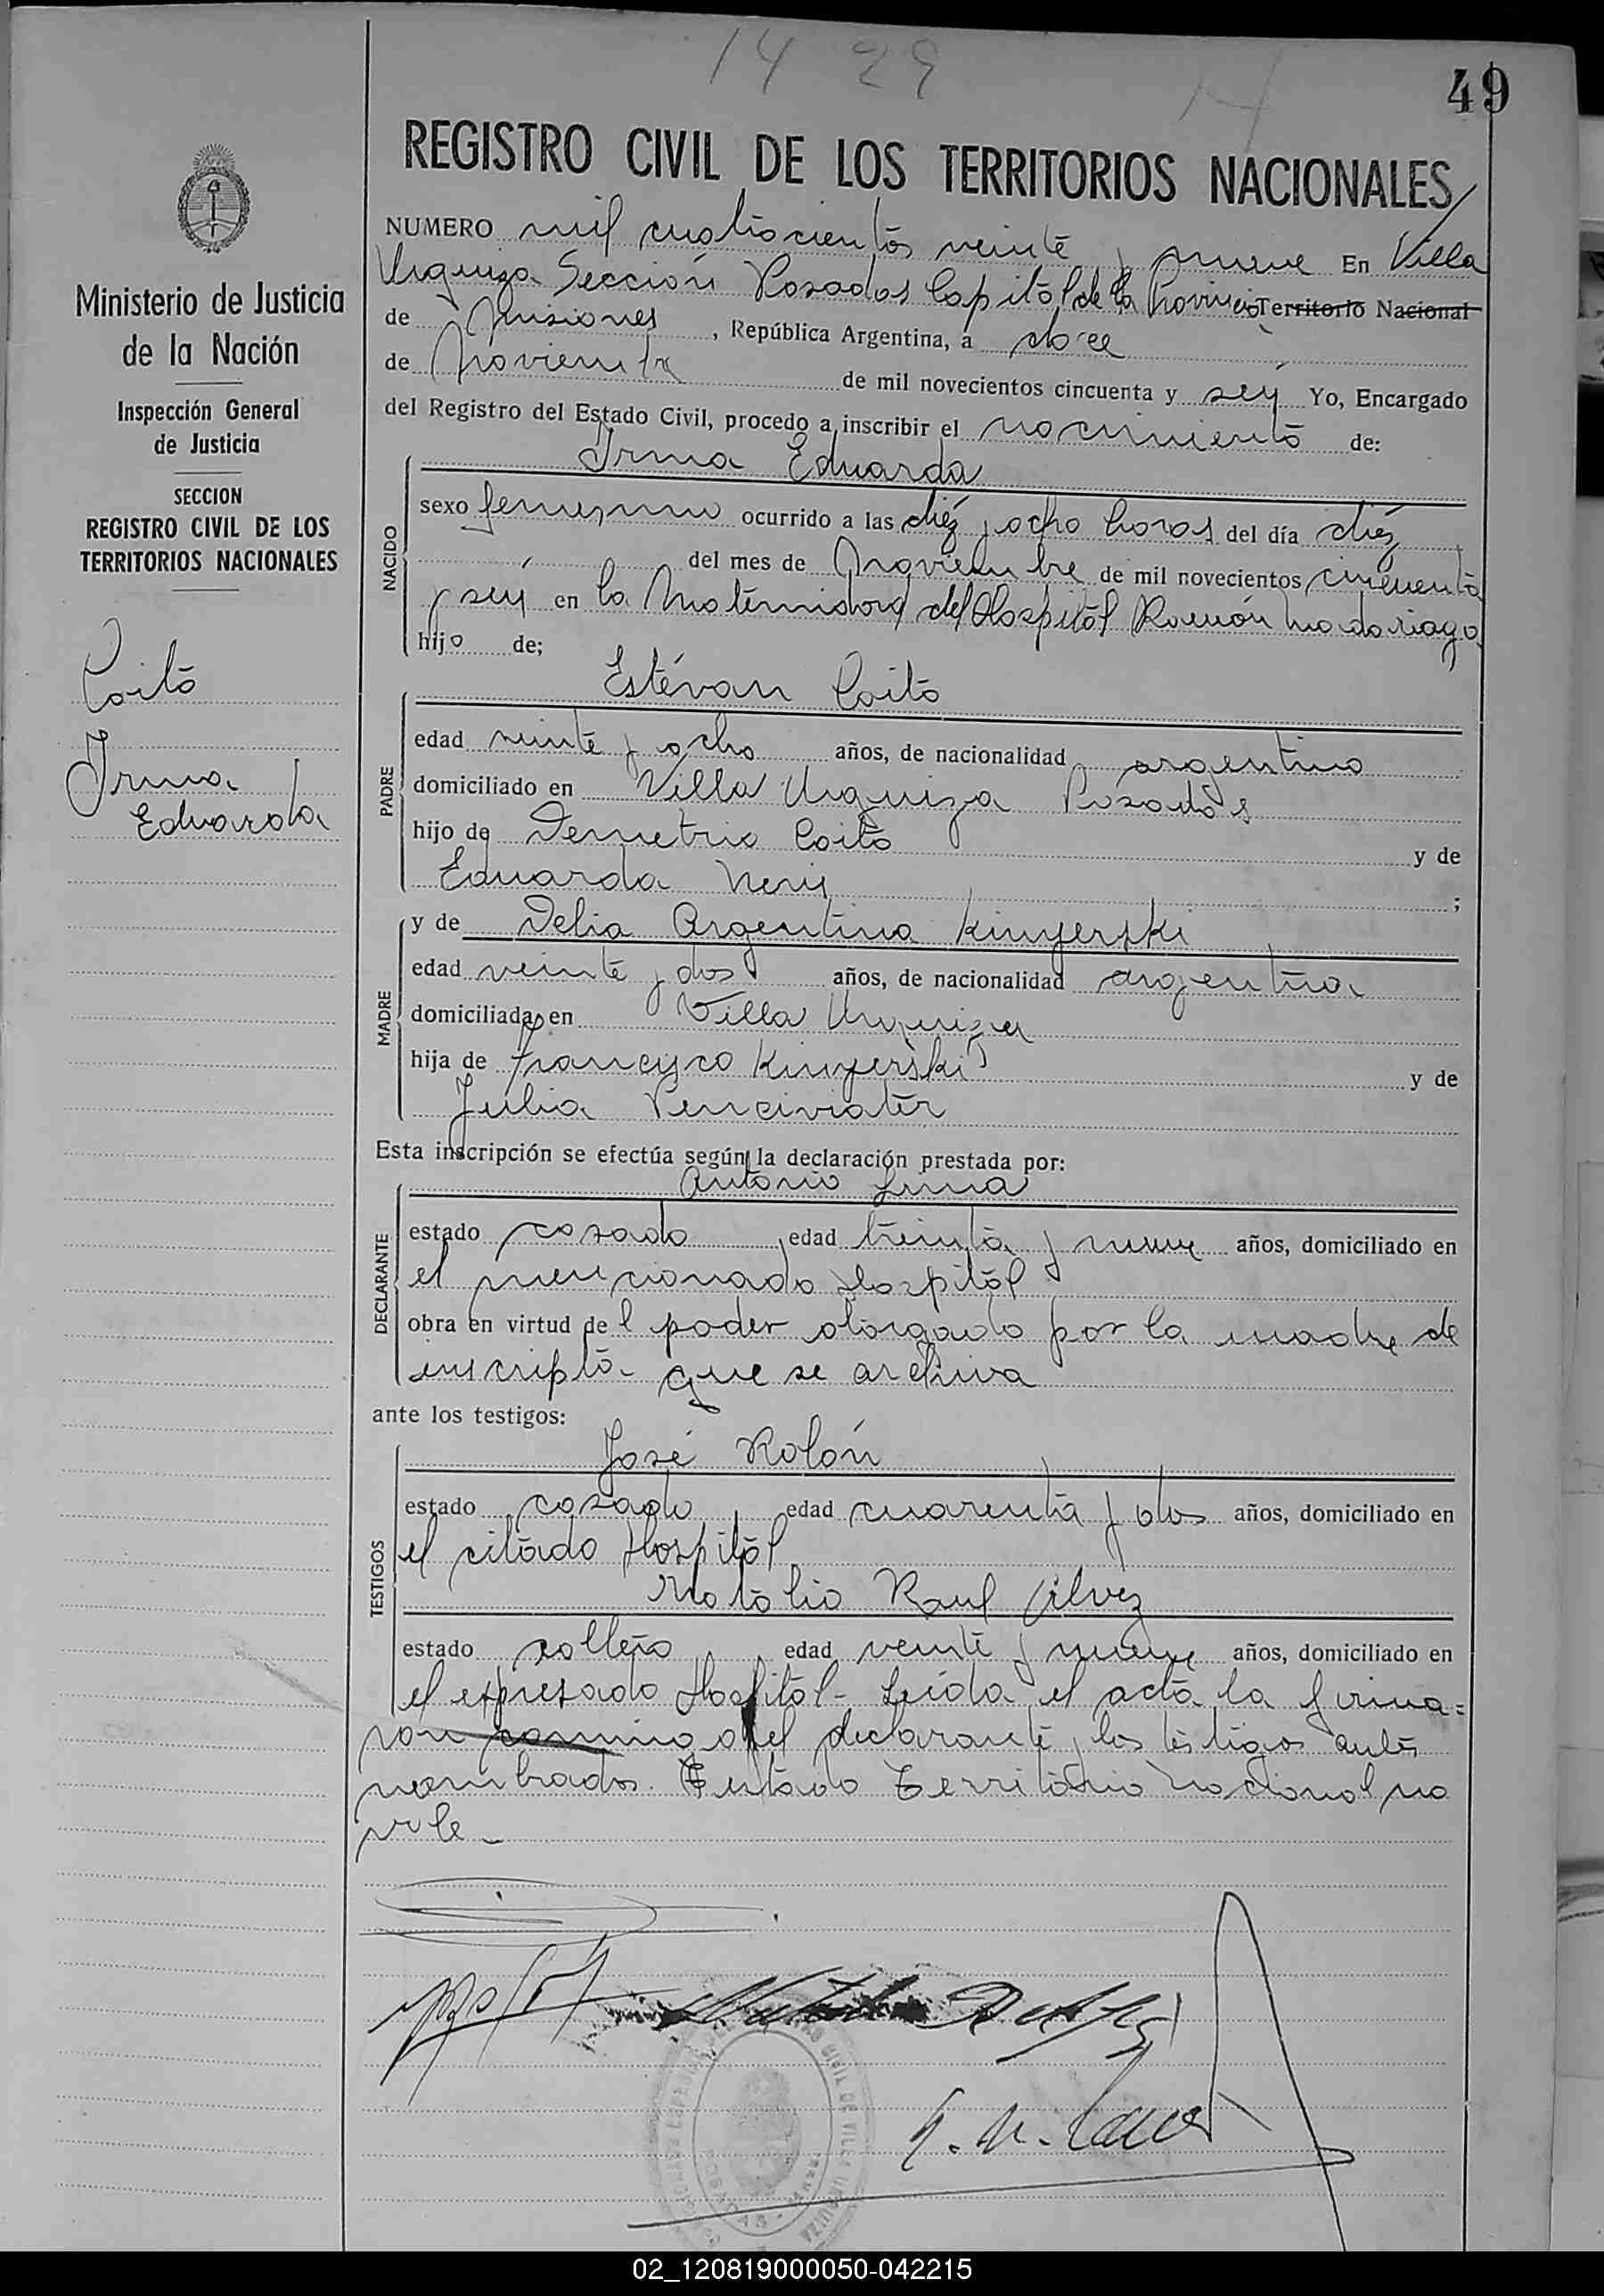 14 29
49
REGISTRO CIVIL DE LOS TERRITORIOS NACIONALES
Ministerio de Justicia
de la Nación
Inspección General
de Justicia
SECCION
REGISTRO CIVIL DE LOS
TERRITORIOS NACIONALES
Coito
Irma
Eduarda
NUMERO mil cuatrocientos veinte y nueve En Villa
Urquiza Sección Posadas Capital de la Provincia Territorio Nacional
de Misiones, República Argentina, a doce
de Noviembre de mil novecientos cincuenta y seis Yo, Encargado
del Registro del Estado Civil, procedo a inscribir el nacimiento de:
Irma Eduarda
NACIDO
sexo femenino ocurrido a las diéz y ocho horas del día diéz
del mes de Noviembre de mil novecientos cincuenta
y seis en la Maternidad del Hospital Ramón Madariaga
hijo de;
Estévan Coito
PADRE
edad veinte y ocho años, de nacionalidad argentino
domiciliado en Villa Urquiza Posadas
hijo de Demetrio Coito y de
Eduarda Neris ;
MADRE
y de Delia Argentina Kingerski
edad veinte y dos años, de nacionalidad argentina
domiciliada en Villa Urquiza
hija de Francisco Kingerski y de
Julia Penciviater
Esta inscripción se efectúa según la declaración prestada por:
Antonio Luna
DECLARANTE
estado casado edad treinta y nueve años, domiciliado en
el mencionado Hospital
obra en virtud de l poder otorgado por la madre de
inscripta - que se archiva
ante los testigos:
José Rolón
TESTIGOS
estado casado edad cuarenta y dos años, domiciliado en
el citado Hospital
Natalio Raul Alvez
estado soltero edad veinte y nueve años, domiciliado en
el expresado Hospital - Leída el acta la firma=
ron conmigo el declarante y los testigos antes
nombrados. Testado Territorio Nacional no
vale -
02_120819000050-042215